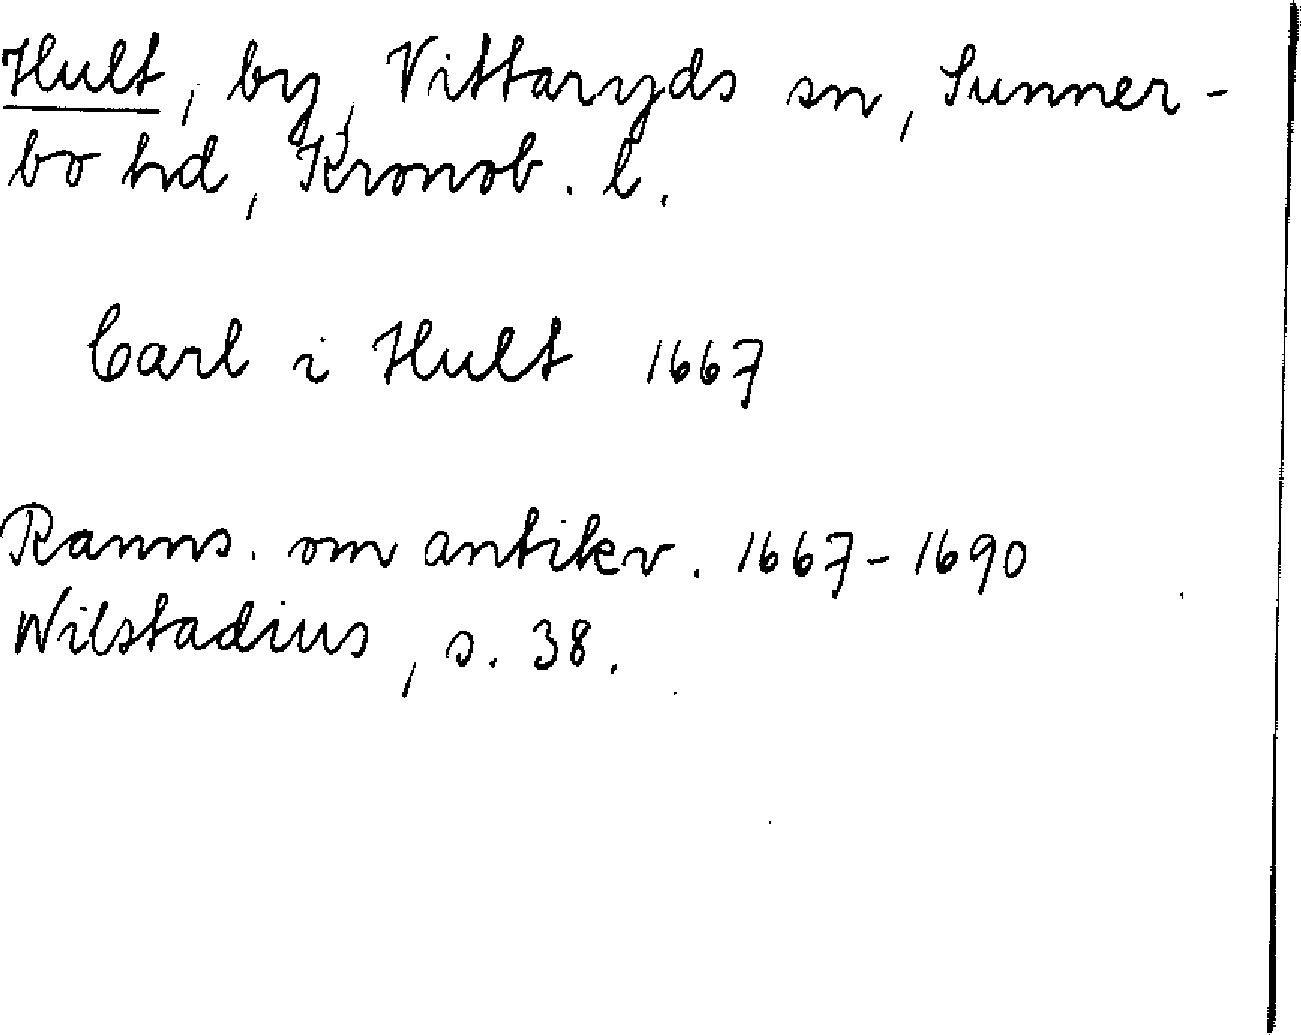 Hult, by, Vittaryds sn, Sunner-
bo hd, Kronob. l.
Carl i Hult 1667
Ranns. om antikv. 1667-1690
Wilstadius, s. 38.